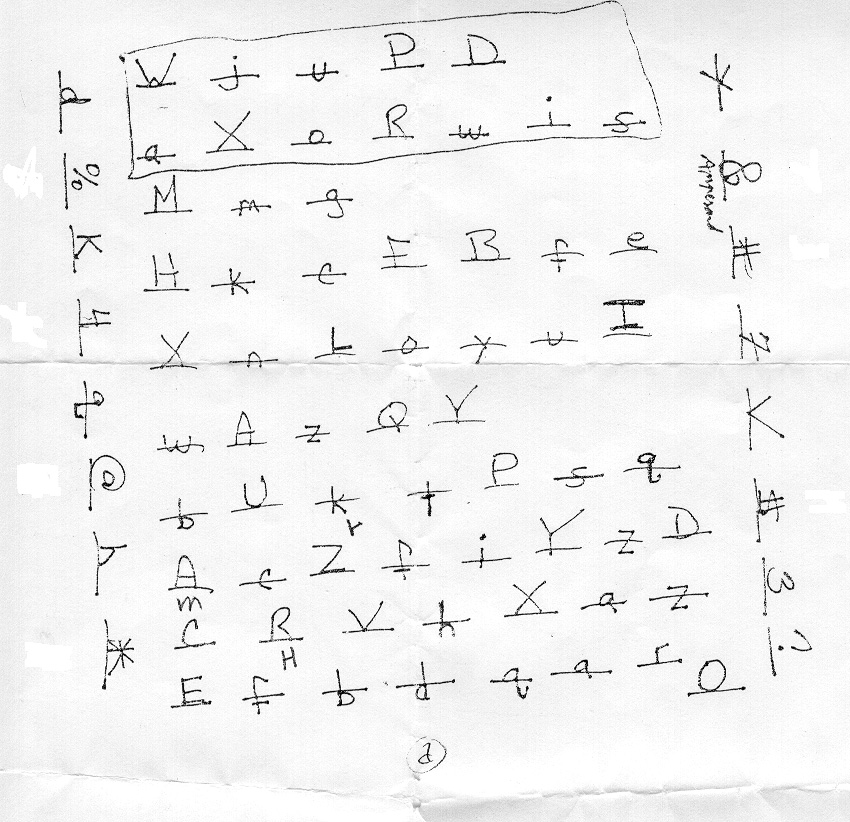 W j u P D
a X o R w i s
M m g
H k c I B f e
X n L o y u I
w A z Q Y
b U k r t P s q
A m c Z f i Y z D
C R H V h X a z
E f b d q a r O
d % K 4 q @ h *
Y & Ampersand # Z K # 3 ?
d